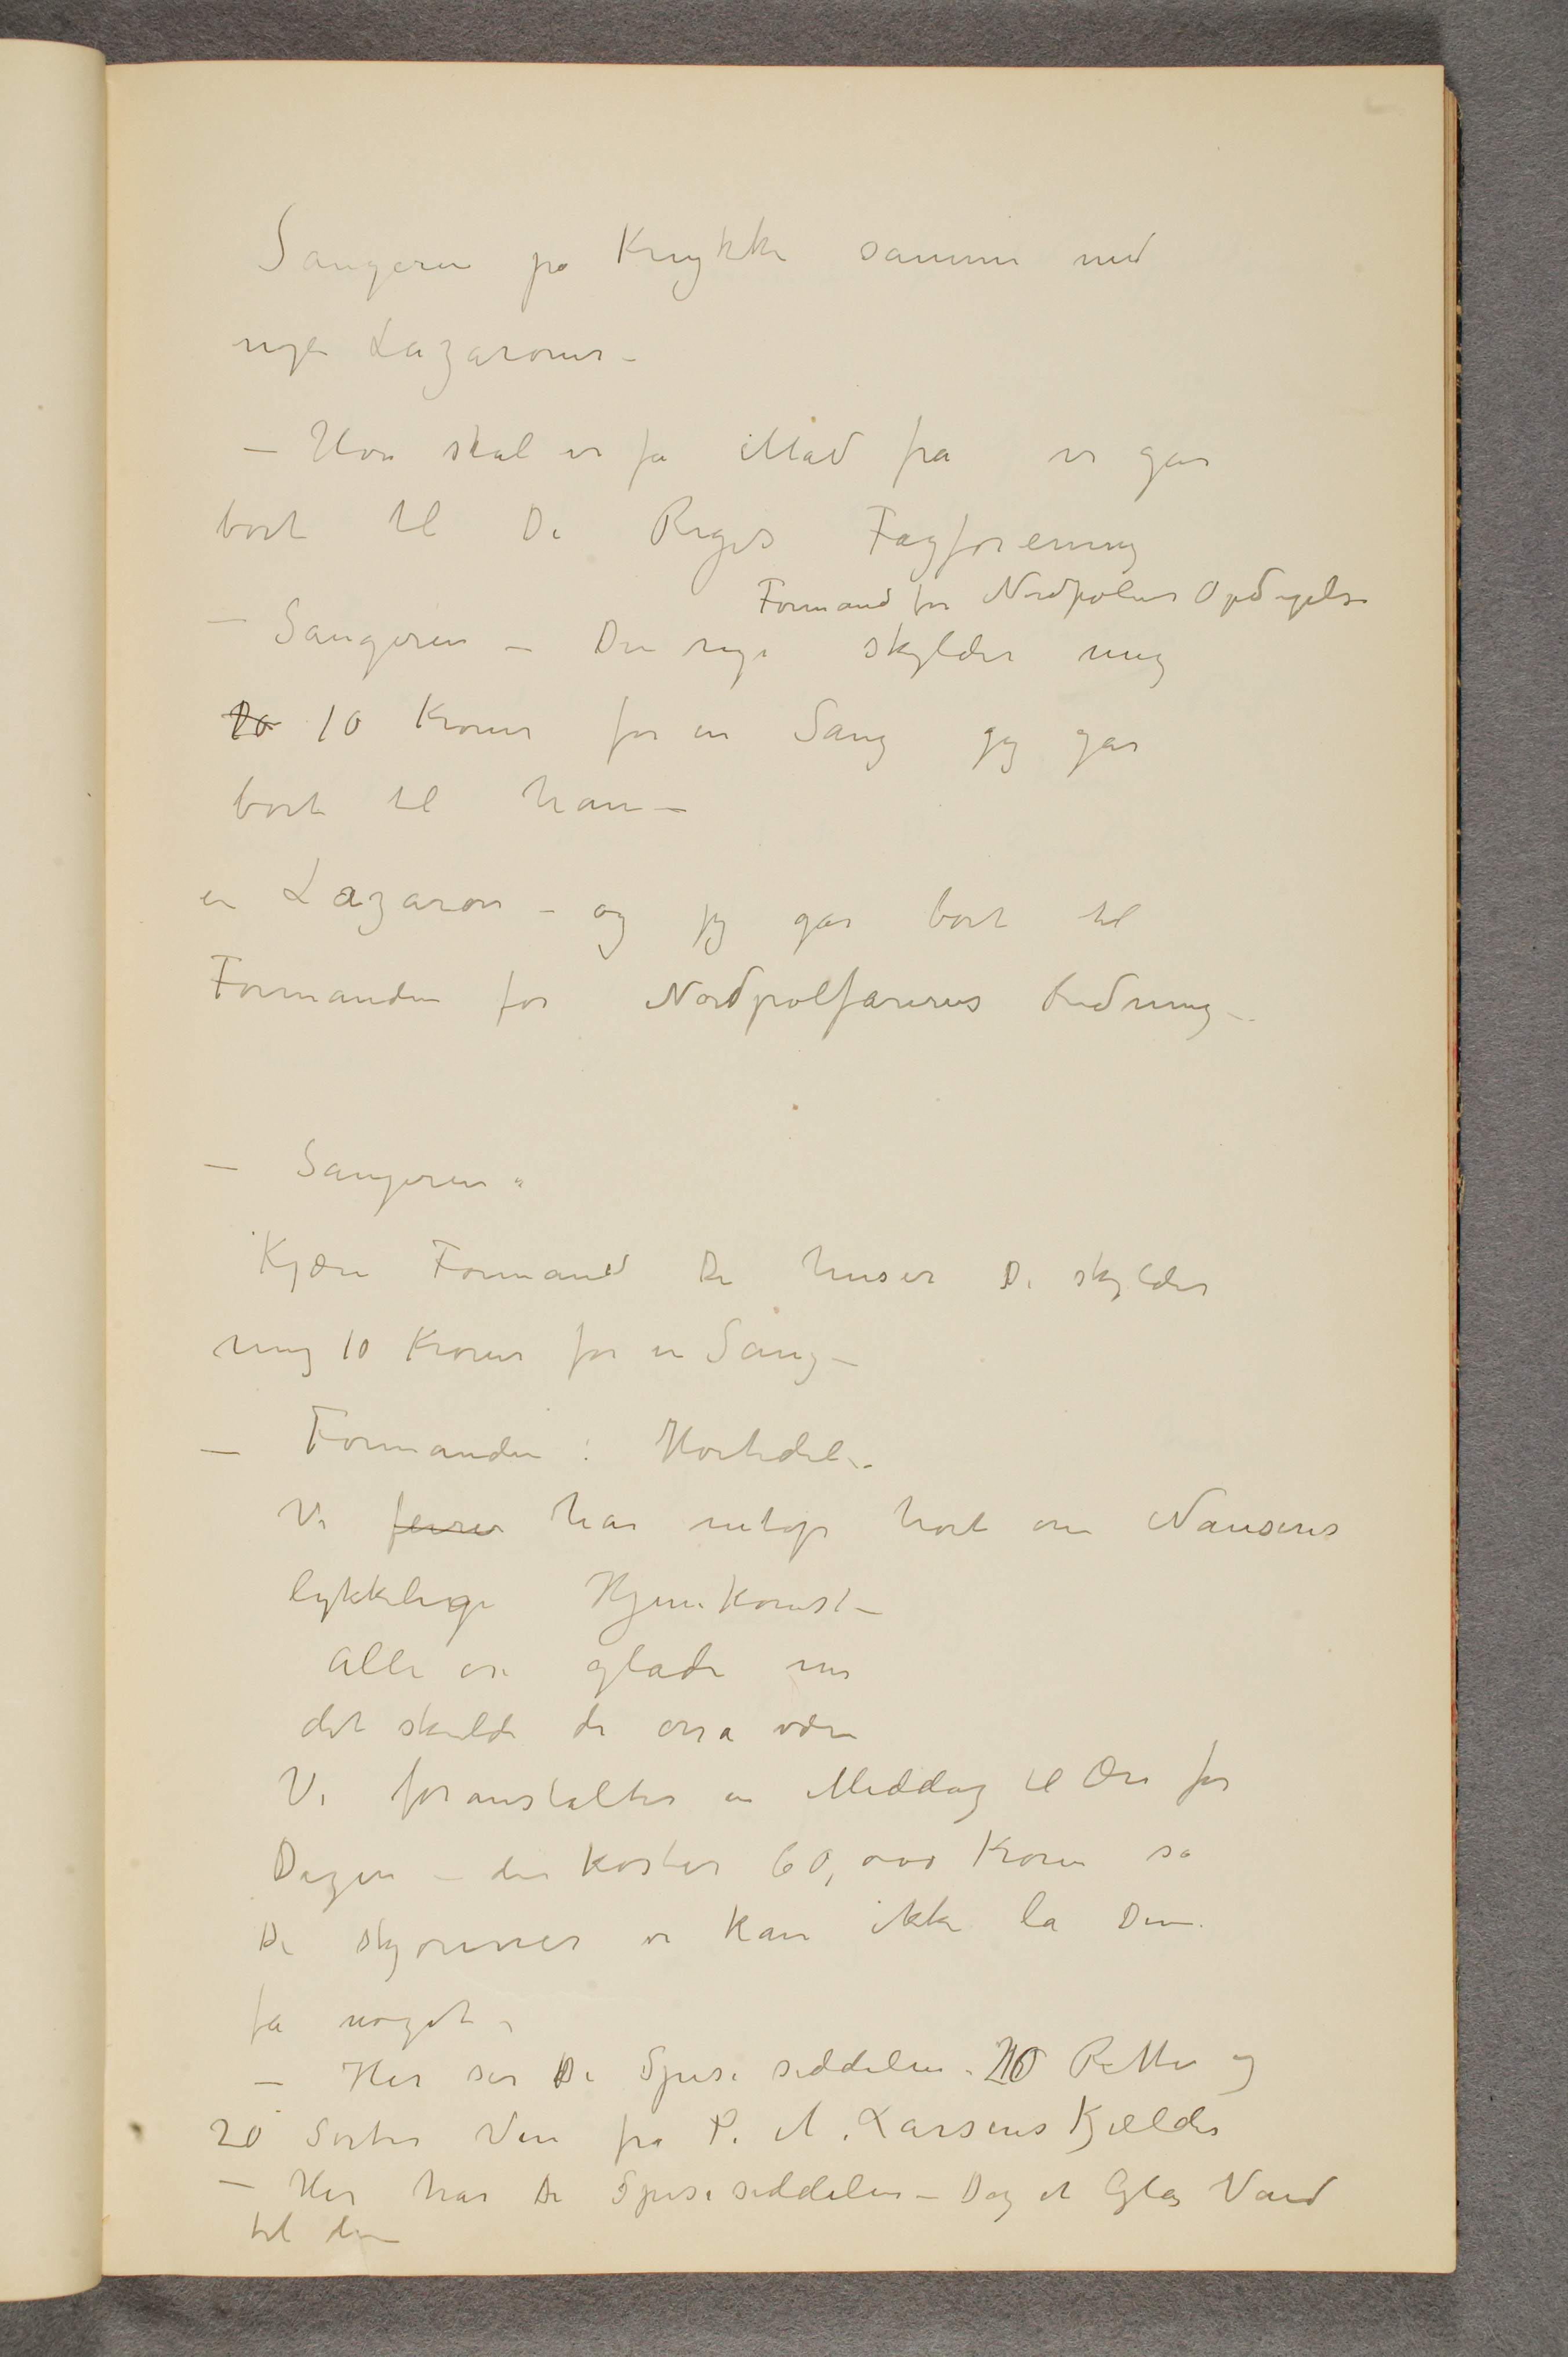 Sangeren på Krykke sammen med
nye Lazaroner –
– Hvor skal vi få Mad fra vi går
bort til De Riges Fagforening
Formand for Nordpolens Opdagelse
– Sangeren – Den rige skylder mig
20 10 Kroner for en Sang jeg går
bort til ham –
en Lazaron – og jeg går bort til
Formanden for Nordpolfareres
– Sangeren.
Kjære Formand De huser De skylder
mig 10 Kroner for en Sang –
– Formanden :
Vi feirer har netop hørt om Nansens
lykkelige Hjemkomst –
alle er glade nu
det skulde de osså være
Vi foranstalter en Middag til Ære for
Dagen – den koster 60,000 Kroner så
De skjønner vi kan ikke la Dem
få noget –
– Her ser De Spiseseddelen. 20 Retter og
20 Sorter Vin fra P. A. Larsens Kjælder
– Her har De Spiseseddelen – Dog et Glas Vand
til den